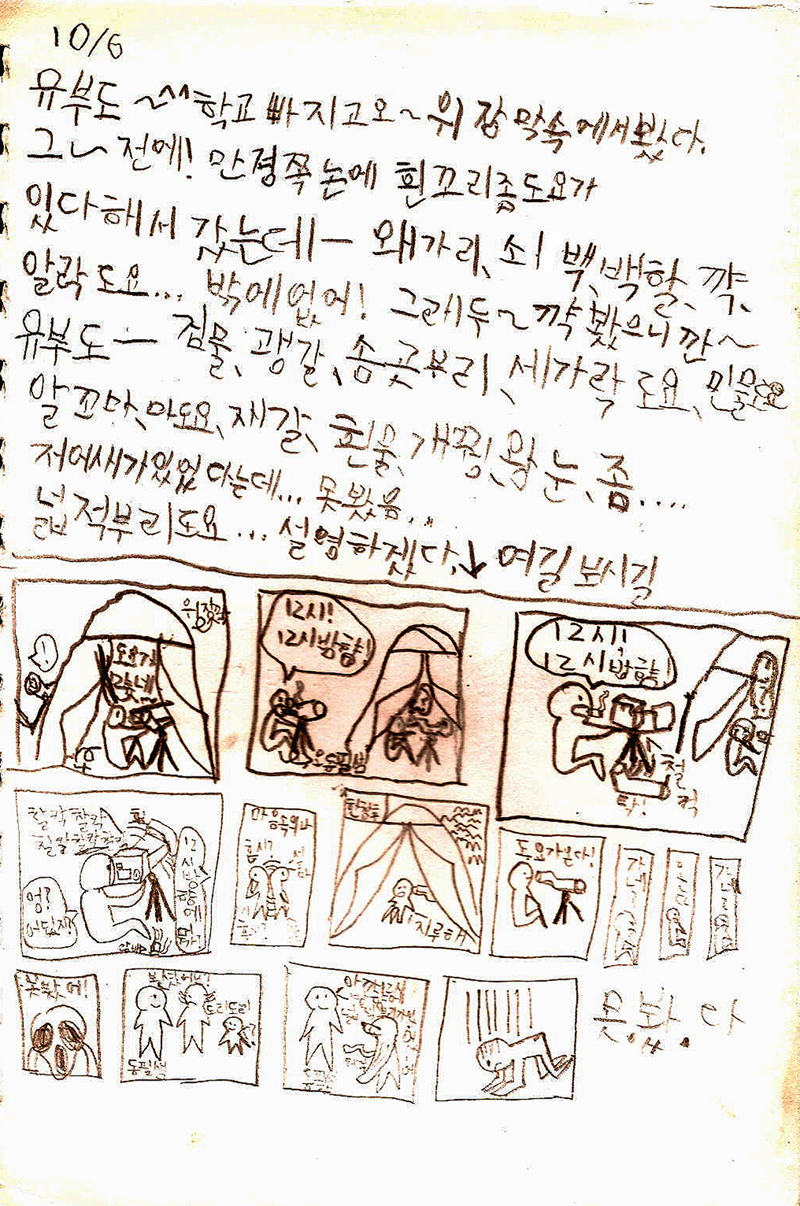 10/6
유부도 ~^^ 학교 빠지고오~ 위장막속에서봤다.
그~ 전에! 만경쪽 논에 흰꼬리좀도요가
있다해서 갔는데ㅡ 왜가리, 쇠백, 백할, 깍,
알락도요... 밖에없어! 그래두~ 깍 봤으니깐~
유부도ㅡ 검물, 괭갈, 송곳부리, 세가락도요, 민물도요
알꼬마, 마도요, 재갈, 흰물, 개꿩, 왕눈, 좀....
저어새가있었다는데... 못봤음..
넓적부리도요... 설명하겠다.↓ 여길보시길
위장막
도요가
많네
12시!
12시방향!
12시!
12시방향!
철컥
탁!
찰칵찰칵
12시방향에
엉?
어딨지?
마음속의나
한참후
지루해
도요가온다!
못봤어!
도리도리
못.봤.다